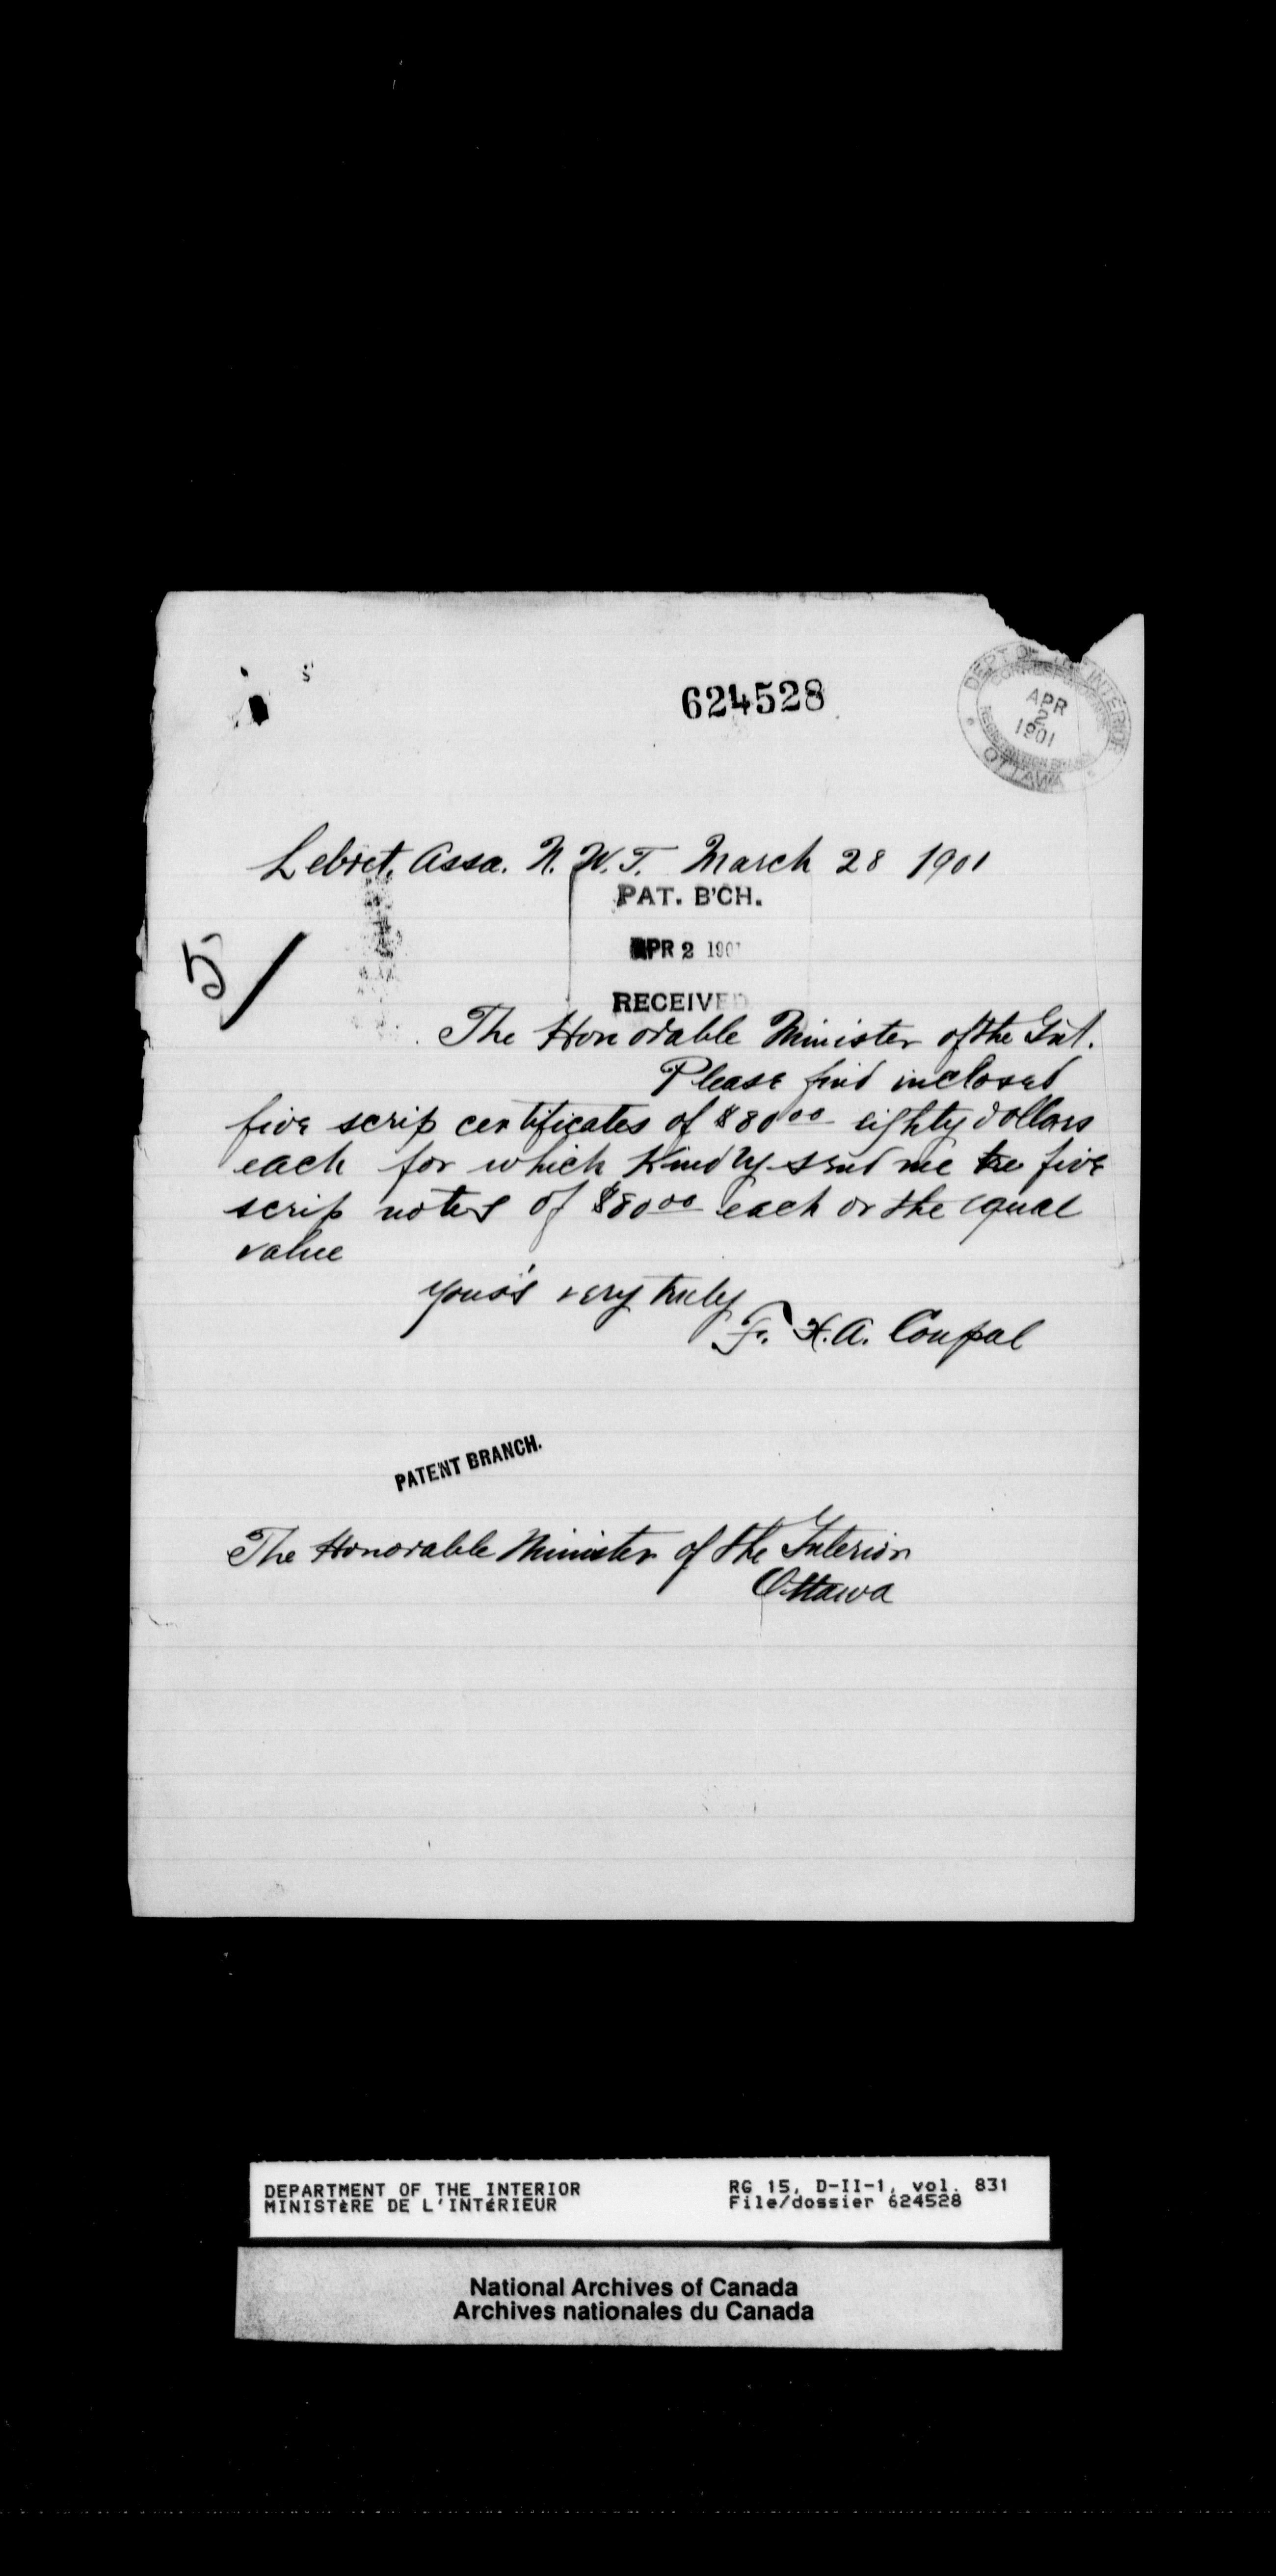 624528
DEPT OF THE INTERIOR
APR
2
1901
OTTAWA
Lebret, Assa. N. W. T. March 28 1901
PAT. B'CH.
APR 2 1901
RECEIVED
5/
The Honorable Minister of the Int.
Please find inclosed
five scrip certificates of $80 00 eighty dollars
each for which kindly send me five
scrip notes of $80 00 each or the equal
value
your's very truly
F. X. A. Coupal
PATENT BRANCH.
The Honorable Minister of the Interior
Ottawa
DEPARTMENT OF THE INTERIOR
MINISTÈRE DE L'INTÉRIEUR
RG 15, D-II-1, vol. 831
File/dossier 624528
National Archives of Canada
Archives nationales du Canada